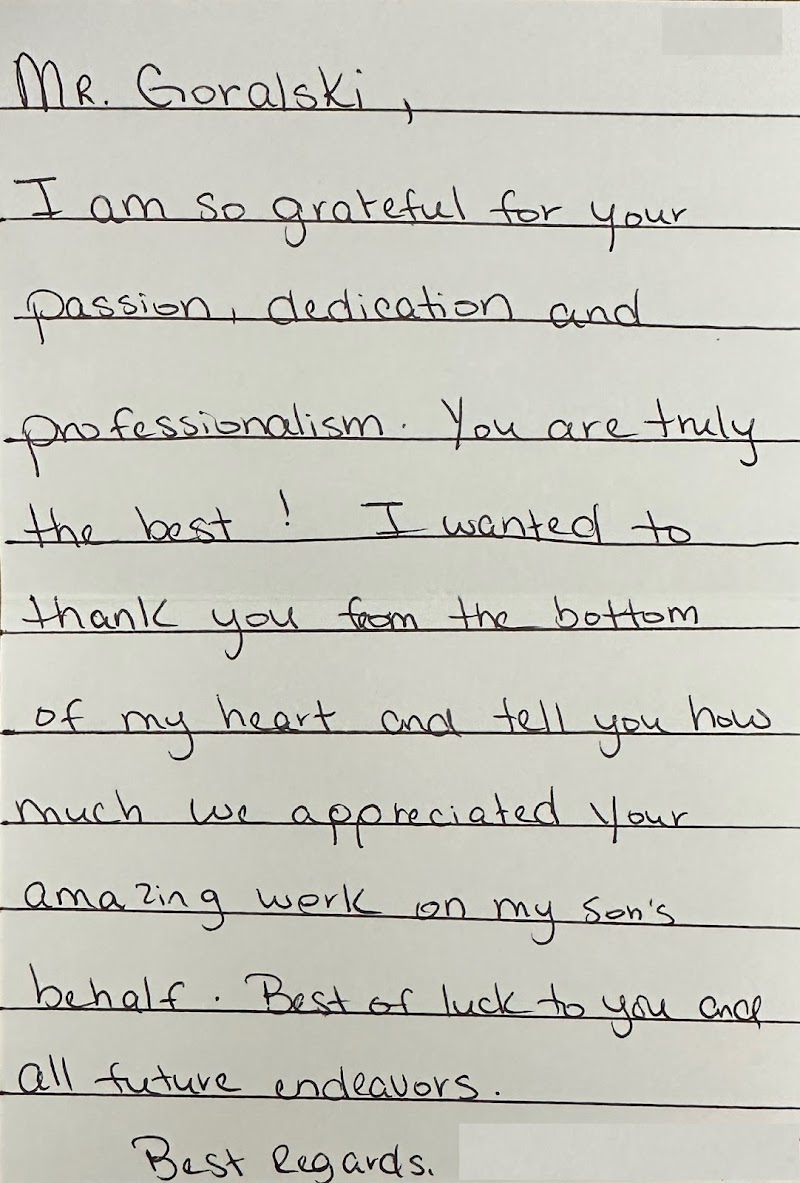 Mr. Goralski,
I am so grateful for your
passion, dedication and
professionalism. You are truly
the best! I wanted to
thank you from the bottom
of my heart and tell you how
much we appreciated your
amazing work on my son's
behalf. Best of luck to you and
all future endeavors.
Best Regards.